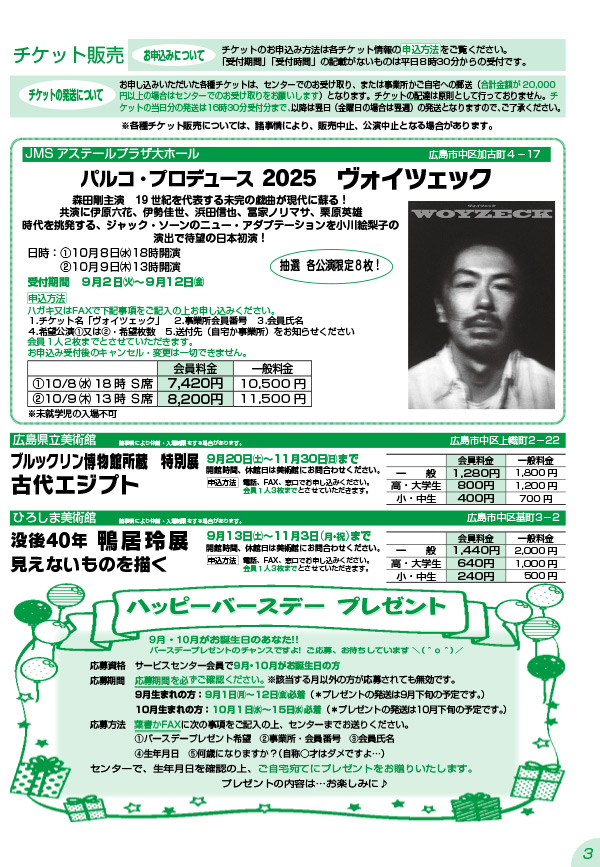 チケット販売
お申込みについて
チケットのお申込み方法は各チケット情報の申込方法をご覧ください。
「受付期間」「受付時間」の記載がないものは平日8時30分からの受付です。
チケットの発送について
お申し込みいただいた各種チケットは、センターでのお受け取り、または事業所かご自宅への郵送（合計金額が20,000
円以上の場合はセンターでのお受け取りをお願いします）となります。チケットの配達は原則として行っておりません。チ
ケットの当日分の発送は16時30分受付分まで、以降は翌日（金曜日の場合は翌週）の発送となりますので、ご了承ください。
※各種チケット販売については、諸事情により、販売中止、公演中止となる場合があります。
JMS アステールプラザ大ホール
広島市中区加古町4－17
パルコ・プロデュース 2025　ヴォイツェック
森田剛主演　19世紀を代表する未完の戯曲が現代に蘇る！
共演に伊原六花、伊勢佳世、浜田信也、冨家ノリマサ、栗原英雄
時代を挑発する、ジャック・ソーンのニュー・アダプテーションを小川絵梨子の
演出で待望の日本初演！
日時：①10月8日㈬18時開演
②10月9日㈭13時開演
抽選 各公演限定8枚！
受付期間　9月2日㈫～9月12日㈮
申込方法
ハガキ又はFAXで下記事項をご記入の上お申し込みください。
1.チケット名「ヴォイツェック」　2.事業所会員番号　3.会員氏名
4.希望公演①又は②・希望枚数　5.送付先（自宅か事業所）をお知らせください
会員1人2枚までとさせていただきます。
お申込み受付後のキャンセル・変更は一切できません。
会員料金　一般料金
①10/8㈬18時 S席　7,420円　10,500円
②10/9㈭13時 S席　8,200円　11,500円
※未就学児の入場不可
ヴォイツェック
WOYZECK
広島県立美術館
諸事情により休館・入場制限をする場合があります。
広島市中区上幟町2－22
ブルックリン博物館所蔵　特別展
古代エジプト
9月20日㈯～11月30日㈰まで
開館時間、休館日は美術館にお問合わせください。
申込方法　電話、FAX、窓口でお申し込みください。
会員1人3枚までとさせていただきます。
会員料金　一般料金
一　般　1,280円　1,800円
高・大学生　800円　1,200円
小・中生　400円　700円
ひろしま美術館
諸事情により休館・入場制限をする場合があります。
広島市中区基町3－2
没後40年 鴨居玲展
見えないものを描く
9月13日㈯～11月3日（月・祝）まで
開館時間、休館日は美術館にお問合わせください。
申込方法　電話、FAX、窓口でお申し込みください。
会員1人3枚までとさせていただきます。
会員料金　一般料金
一　般　1,440円　2,000円
高・大学生　640円　1,000円
小・中生　240円　500円
ハッピーバースデー プレゼント
9月・10月がお誕生日のあなた!!
バースデープレゼントのチャンスですよ! ご応募、お待ちしています ＼(＾o＾)／
応募資格　サービスセンター会員で9月・10月がお誕生日の方
応募期間　応募期間を必ずご確認ください。※該当する月以外の方が応募されても無効です。
9月生まれの方：9月1日㈪～12日㈮必着（＊プレゼントの発送は9月下旬の予定です。）
10月生まれの方：10月1日㈬～15日㈬必着（＊プレゼントの発送は10月下旬の予定です。）
応募方法　葉書かFAXに次の事項をご記入の上、センターまでお送りください。
①バースデープレゼント希望　②事業所・会員番号　③会員氏名
④生年月日　⑤何歳になりますか？（自称○才はダメですよ…）
センターで、生年月日を確認の上、ご自宅宛てにプレゼントをお贈りいたします。
プレゼントの内容は…お楽しみに♪
3